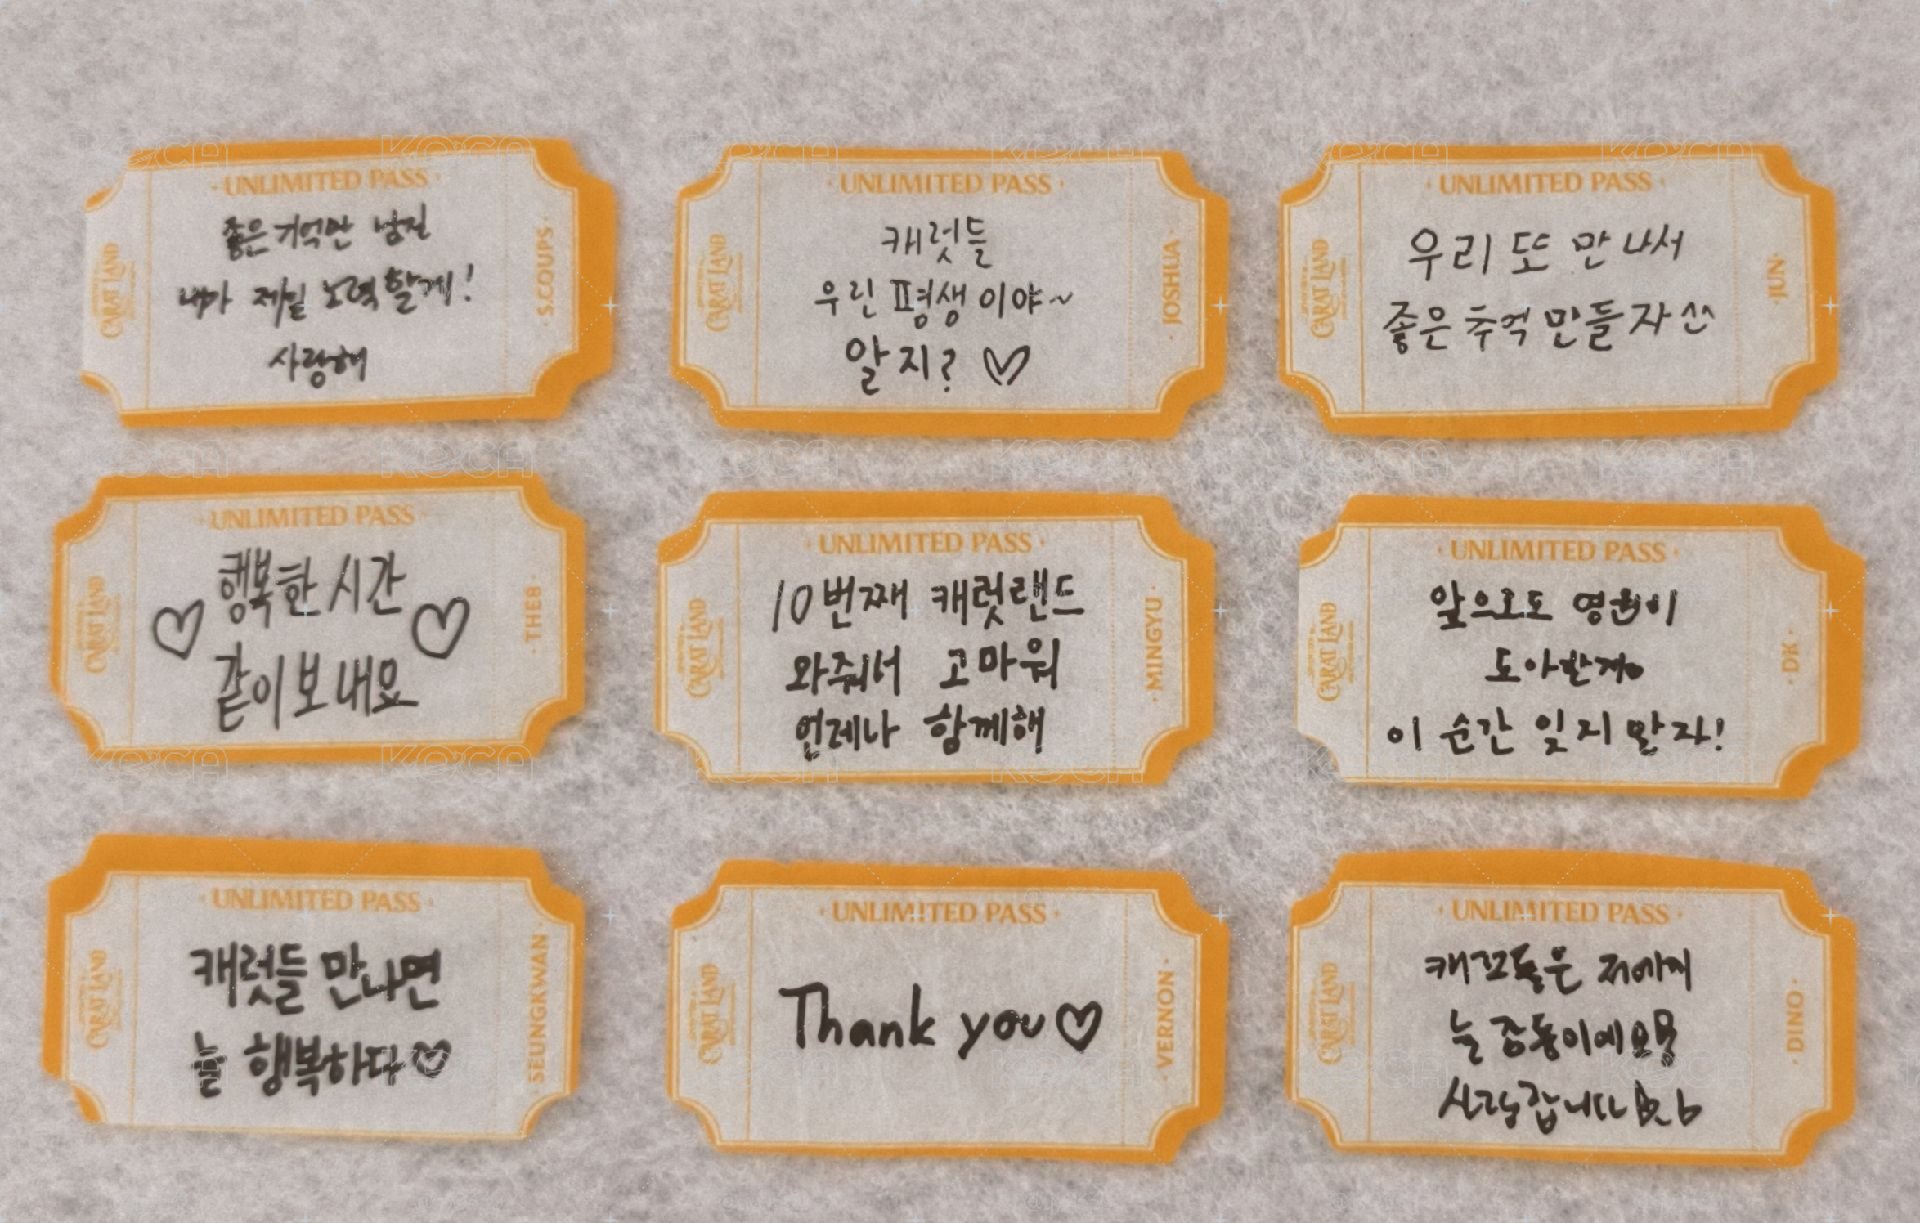 UNLIMITED PASS
좋은 기억만 남길
내가 제일 노력할게!
사랑해
CARAT LAND
S.COUPS
UNLIMITED PASS
캐럿들
우린 평생이야~
알지? ♡
CARAT LAND
JOSHUA
UNLIMITED PASS
우리 또 만나서
좋은 추억 만들자 ^^
CARAT LAND
JUN
UNLIMITED PASS
행복한 시간
같이 보내요
CARAT LAND
THE8
UNLIMITED PASS
10번째 캐럿랜드
와줘서 고마워
언제나 함께해
CARAT LAND
MINGYU
UNLIMITED PASS
앞으로도 영원히
이 순간 잊지 말자!
CARAT LAND
DK
UNLIMITED PASS
캐럿들 만나면
늘 행복하다♡
CARAT LAND
SEUNGKWAN
UNLIMITED PASS
Thank you♡
CARAT LAND
VERNON
UNLIMITED PASS
저에게
늘
사랑합니다
CARAT LAND
DINO
KOCA